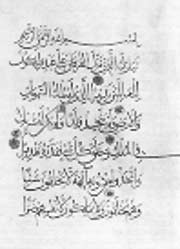 بسم الله الرحمن الرحيم
تبارك الذي نزل الفرقان على عبده ليكون
للعالمين نذيرا الذي له ملك السموات
والارض ولم يتخذ ولدا ولم يكن له شريك
في الملك وخلق كل شيء فقدره تقديرا
واتخذوا من دونه آلهة لا يخلقون شيئا
وهم يخلقون ولا يملكون لأنفسهم ضرا